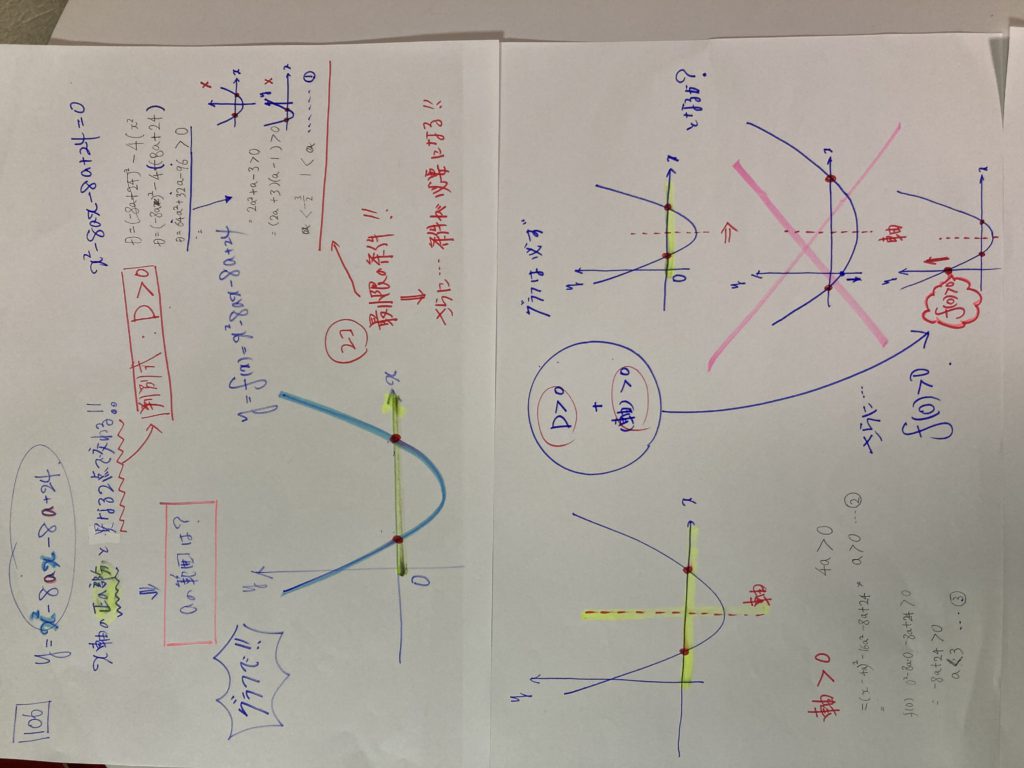 106
y=x²-8ax-8a+24
x軸の正の部分と異なる2点で交わる!!
⇓
aの範囲は?
判別式:D>0
x²-8ax-8a+24=0
D=(-8ax)²-4(-8a+24)
D=64a²+32a-96>0
=2a²+a-3>0
=(2a+3)(a-1)>0
a<-3/2 1<a ……… ①
グラフで!!
y=f(x)=x²-8ax-8a+24
y
x
O
(2コ)
最低限の条件!!
⇓
さらに… 条件が必要になる!!
y
x
O
軸
軸>0
4a>0
=(x-4a)²-16a²-8a+24
a>0 …②
f(0) 0²-8a×0-8a+24>0
=-8a+24>0
a<3 …③
D>0
+
軸>0
グラフは必ず
y
x
O
⇒
となるか?
y
x
軸
y
x
f(0)
さらに…
f(0)>0